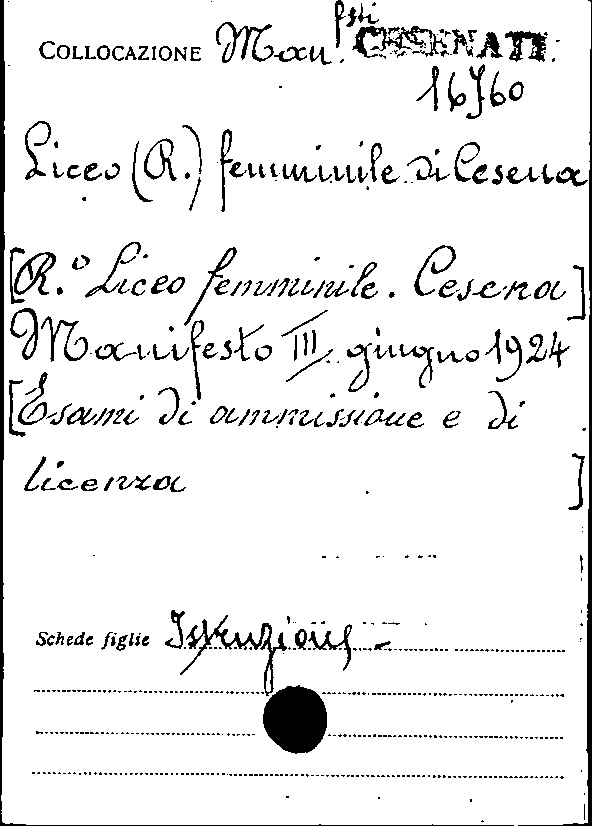 COLLOCAZIONE Man.fsti CESENATI.
16J60
Liceo (R.) femminile di Cesena
[R.º Liceo femminile. Cesena]
Manifesto III giugno 1924
[Esami di ammissione e di
licenza ]
Schede figlie Istruzione -